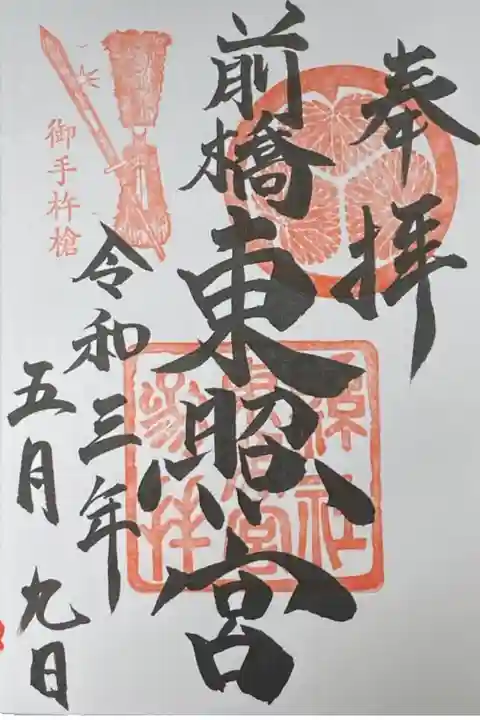 奉拝
前橋東照宮
令和三年
五月九日
御手杵槍